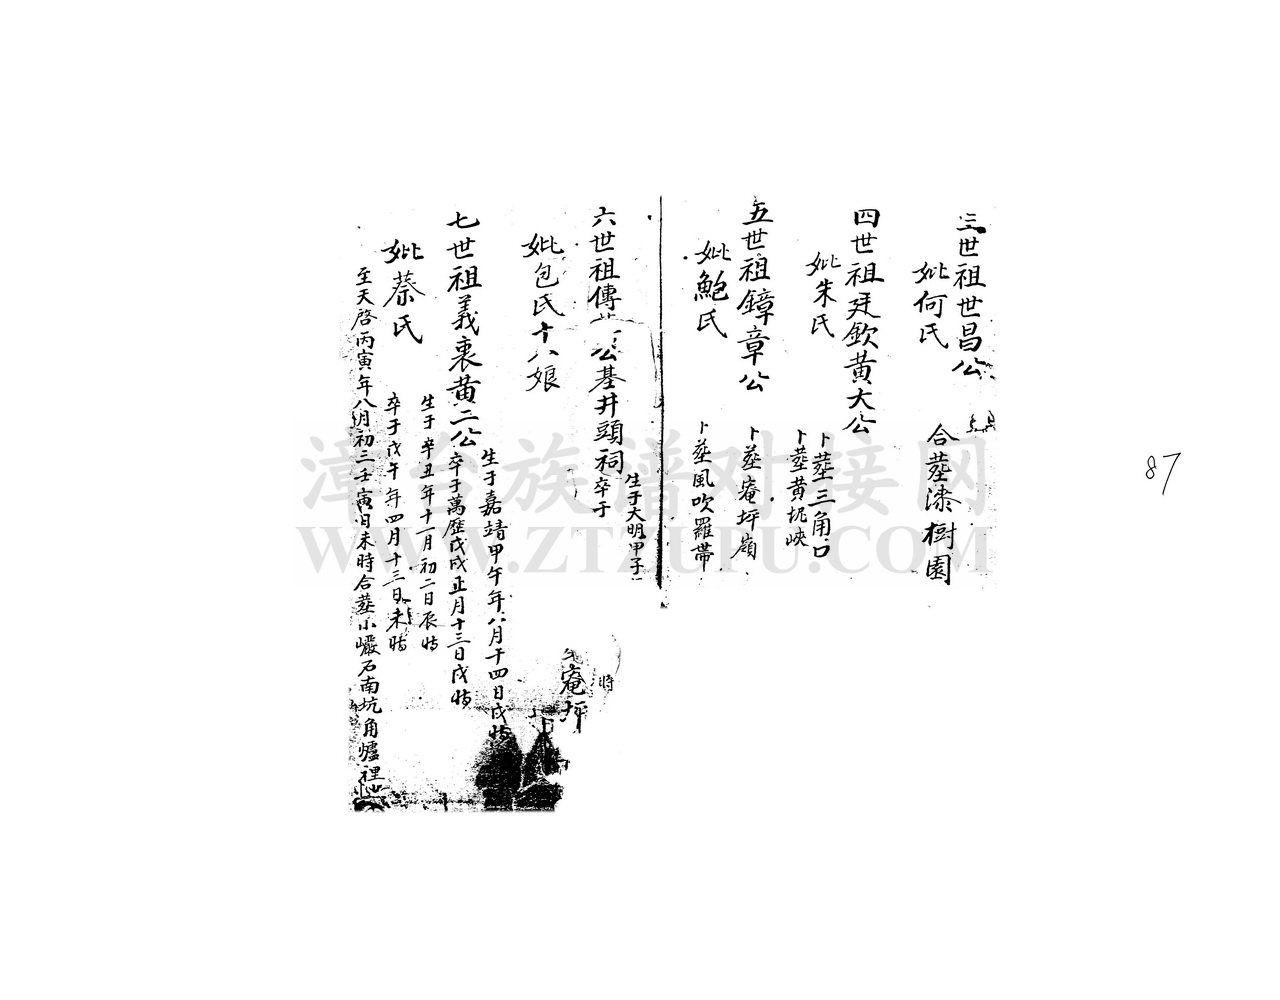 三世祖世昌公
妣何氏
合塟漆樹園
四世祖廷欽黃大公
妣朱氏
卜塟三角口
卜塟黃坭峽
五世祖鐘章公
妣鮑氏
卜塟庵坪嶺
卜塟風吹羅帶
六世祖傳
公基井頭祠
生于大明甲子
卒于
時
庵坪
妣包氏十八娘
七世祖義裏黃二公
生于嘉靖甲午年八月十四日戌時
卒于萬歷戊戌正月十三日戌時
妣蔡氏
生于辛丑年十一月初二日辰時
卒于戊午年四月十三日未時
至天啓丙寅年八月初三壬寅日未時合塟小巖石南坑角爐裡
87
漳台族谱对接网
WWW.ZTZUPU.COM